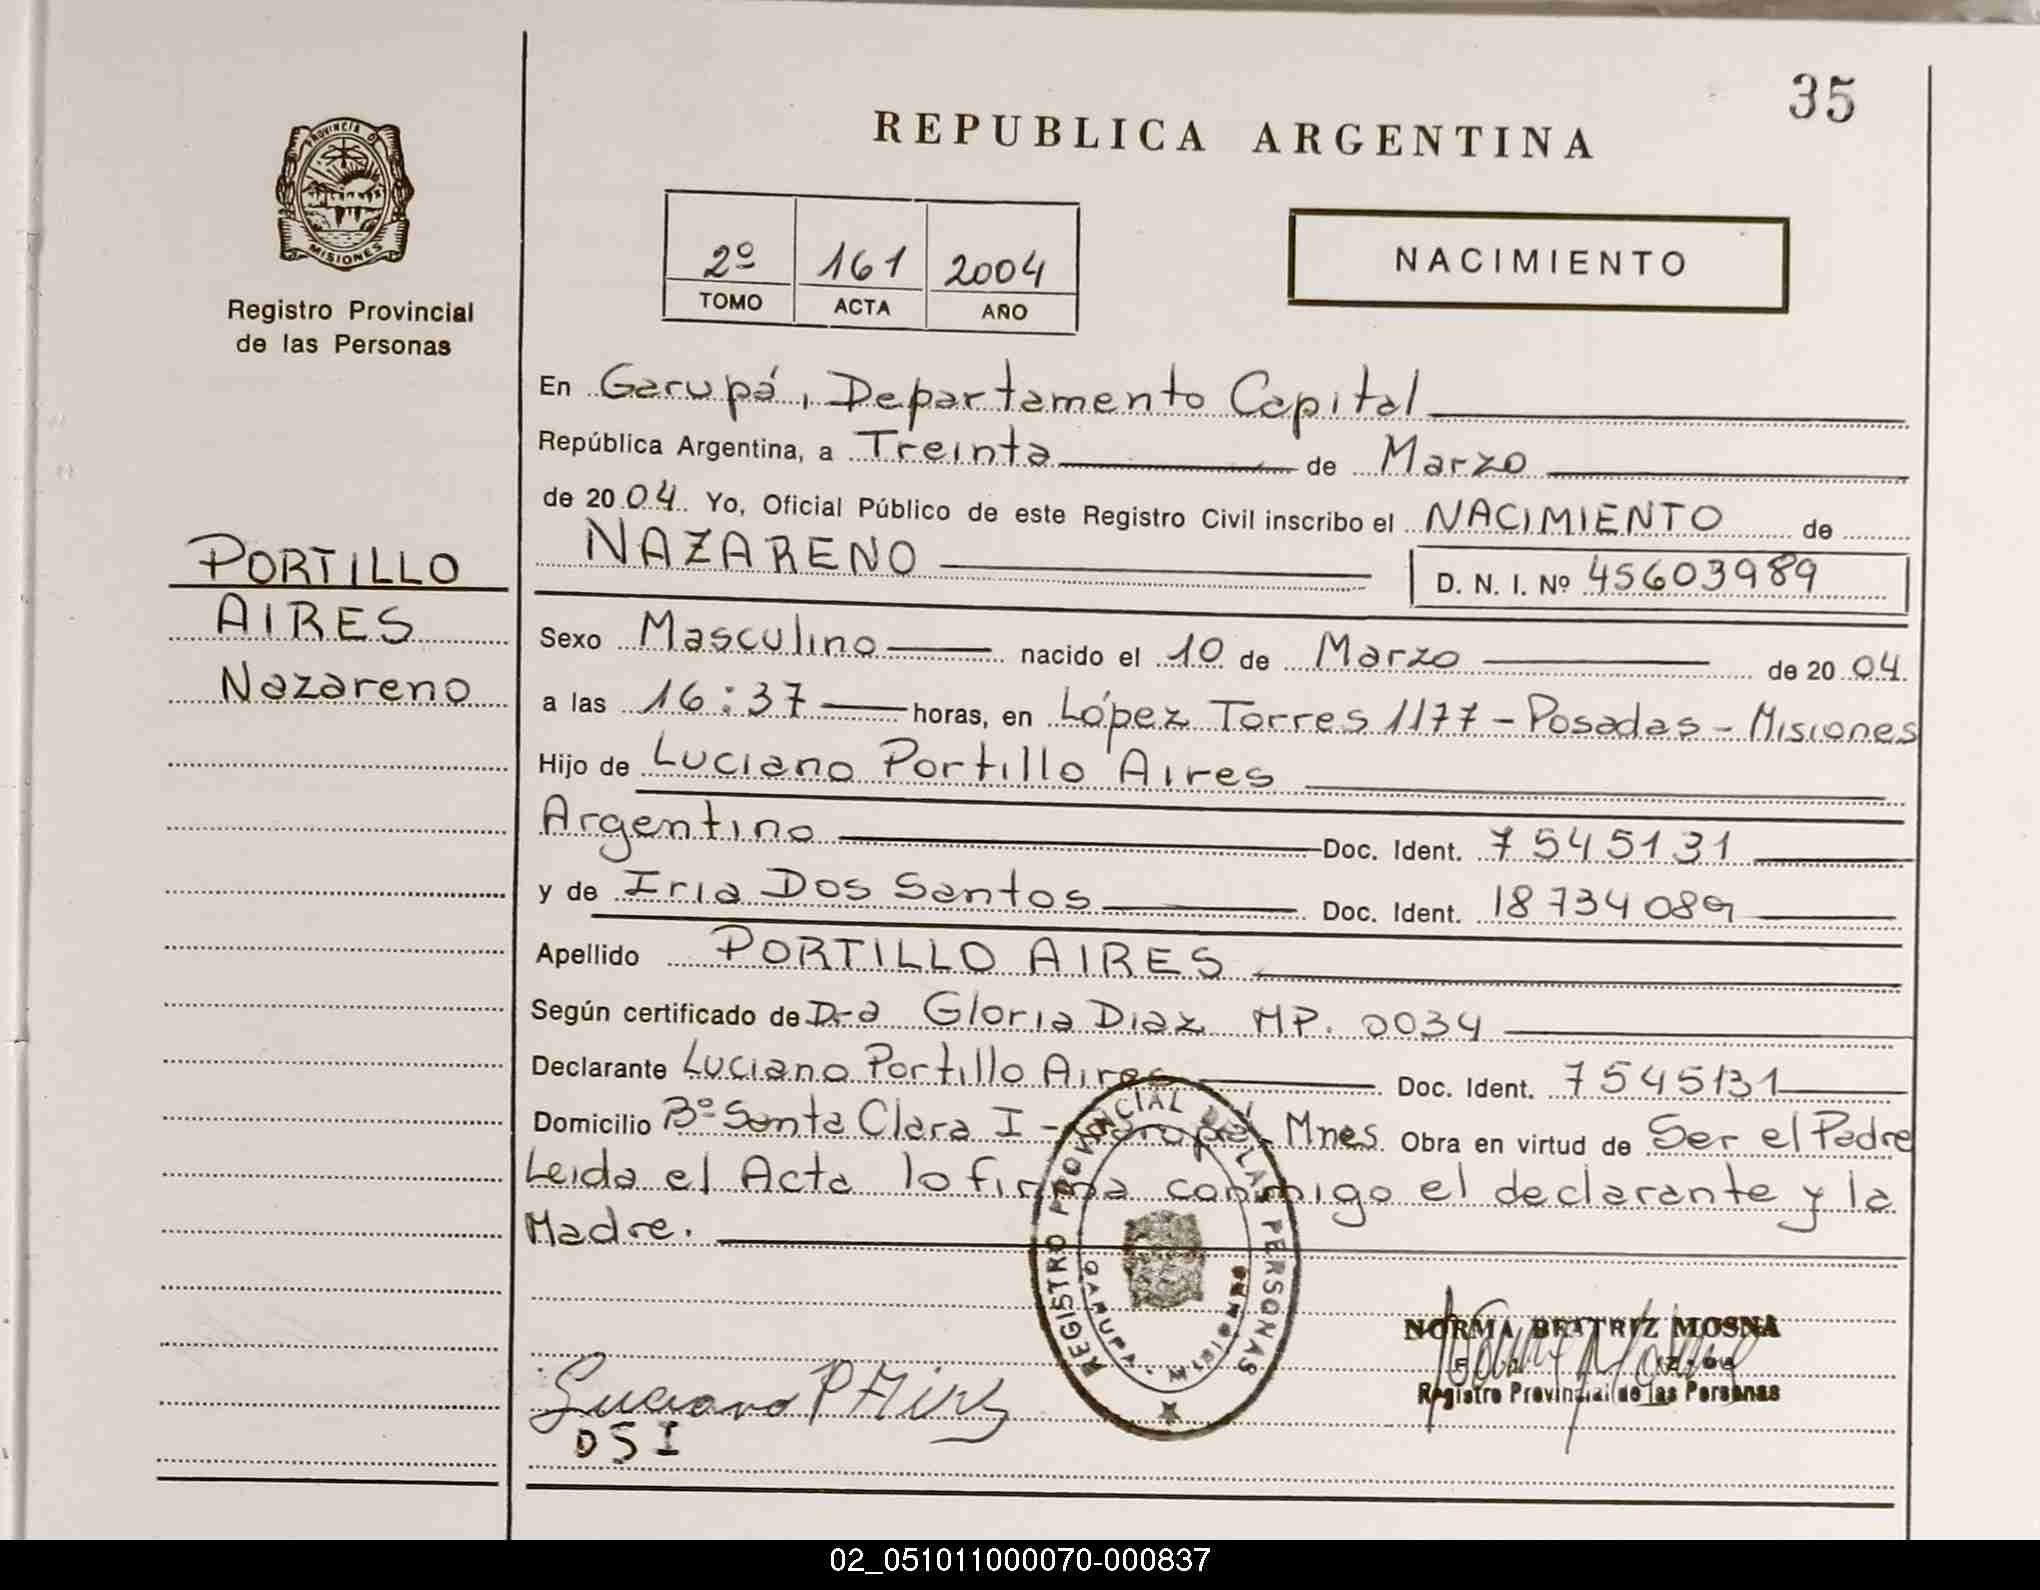 35
REPUBLICA ARGENTINA
PROVINCIA D
MISIONES
Registro Provincial
de las Personas
2º 161 2004
TOMO ACTA AÑO
NACIMIENTO
PORTILLO
AIRES
Nazareno
En Garupá, Departamento Capital
República Argentina, a Treinta de Marzo
de 2004. Yo, Oficial Público de este Registro Civil inscribo el NACIMIENTO de
NAZARENO D. N. I. Nº 45603989
Sexo Masculino nacido el 10 de Marzo de 2004.
a las 16:37 horas, en López Torres 1177 - Posadas - Misiones
Hijo de Luciano Portillo Aires
Argentino Doc. Ident. 7545131
y de Iria Dos Santos Doc. Ident. 18734089
Apellido PORTILLO AIRES
Según certificado de Dra Gloria Diaz MP. 0034
Declarante Luciano Portillo Aires Doc. Ident. 7545131
Domicilio Bº Santa Clara I - Garupá - Mnes. Obra en virtud de Ser el Padre
Leida el Acta lo firma conmigo el declarante y la
Madre.
REGISTRO PROVINCIAL DE LAS PERSONAS
GARUPA - MISIONES
NORMA BEATRIZ MOSNA
Registro Provincial de las Personas
Luciano P Aires
DSI
02_051011000070-000837